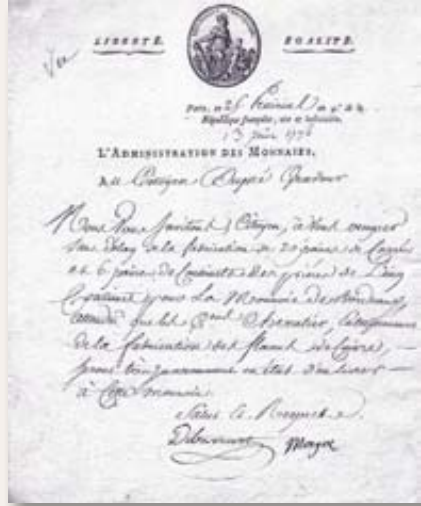 Vu
LIBERTÉ. EGALITÉ.
Paris, ce 25 Prairial an 4.
République française, une et indivisible.
13 Juin 1796
L'ADMINISTRATION DES MONNAIES,
Au Citoyen Dupré Graveur
Nous vous invitons, Citoyen, à vous occuper
sans délay de la fabrication de 20 paires de Carrés
et 6 paires de Coussinets des pièces de Cinq
Centimes pour La Monnaie de Bordeaux,
attendu que le Chevalier, Entrepreneur
de la fabrication des flaons de Cuivre, —
sera en état d'en livrer —
à Cette monnaie.
Salut et